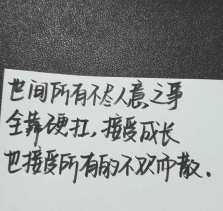 世间所有不尽人意之事
全靠硬扛，接受成长
也接受所有的不欢而散.